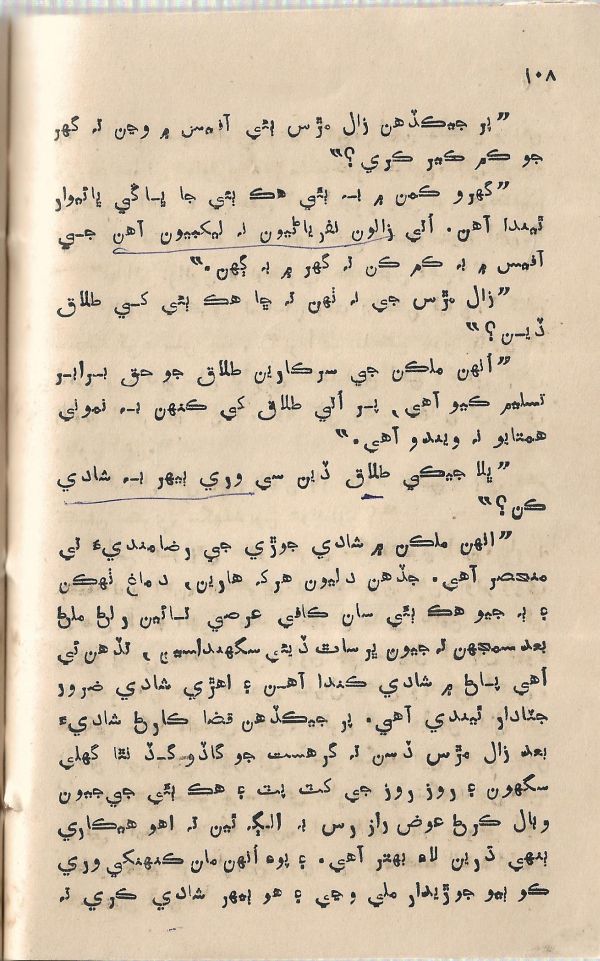 ١٠٨
”پر جيڪڏهن زال مڙس ٻئي آفيس ۾ وڃن ته گهر
جو ڪم ڪير ڪري؟“
”گهرو ڪمن ۾ به ٻئي هڪ ٻئي جا ڀاڱي ڀائيوار
ٿيندا آهن. اُتي زالون نفر ياڻيون نه ليکبيون آهن جي
آفيس ۾ به ڪم ڪن ته گهر ۾ به ڳهن.“
”زال مڙس جي نه ٺهن ته ڇا هڪ ٻئي کي طلاق
ڏين؟“
”اُنهن ملڪن جي سرڪارين طلاق جو حق برابر
تسليم ڪيو آهي، پر اُتي طلاق کي ڪنهن به نموني
همتايو نه ويندو آهي.“
”ڀلا جيڪي طلاق ڏين سي وري ٻيهر به شادي
ڪن؟“
”انهن ملڪن ۾ شادي جوڙي جي رضامنديءَ تي
منحصر آهي. جڏهن دليون هرکه هارين، دماغ ٺهڪن
۽ ٻه جيو هڪ ٻئي سان ڪافي عرصي تائين رلڻ ملڻ
بعد سمجهن ته جيون ڀر ساٿ ڏيئي سگهنداسين، تڏهن ئي
اُهي پاڻ ۾ شادي ڪندا آهن ۽ اهڙي شادي ضرور
جٽادار ٿيندي آهي. پر جيڪڏهن قضا ڪارڻ شاديءَ
بعد زال مڙس ڏسن ته گرهست جو گاڏو گڏ نٿا گهلي
سگهون ۽ روز روز جي کٽ پٽ ۽ هڪ ٻئي جي جيون
وبال ڪرڻ عوض راز رس به الڳ ٿين ته اهو هيڪاري
ٻنهي ڌرين لاءِ بهتر آهي. ۽ پوءِ اُنهن مان ڪنهنکي وري
ڪو ٻيو جوڙيدار ملي وڃي ۽ هو ٻيهر شادي ڪري ته